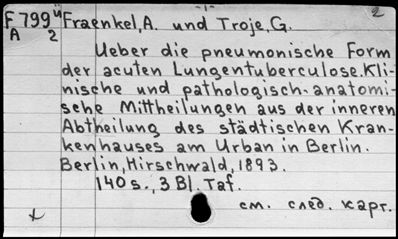 2
F 799 ü Fraenkel, A. und Troje, G.
A 2
Ueber die pneumonische Form
der acuten Lungentuberculose. Kli-
nische und pathologisch-anatomi-
sche Mittheilungen aus der inneren
Abtheilung des städtischen Kran-
kenhauses am Urban in Berlin.
Berlin, Hirschwald, 1893.
140 s., 3 Bl. Taf.
см. след. карт.